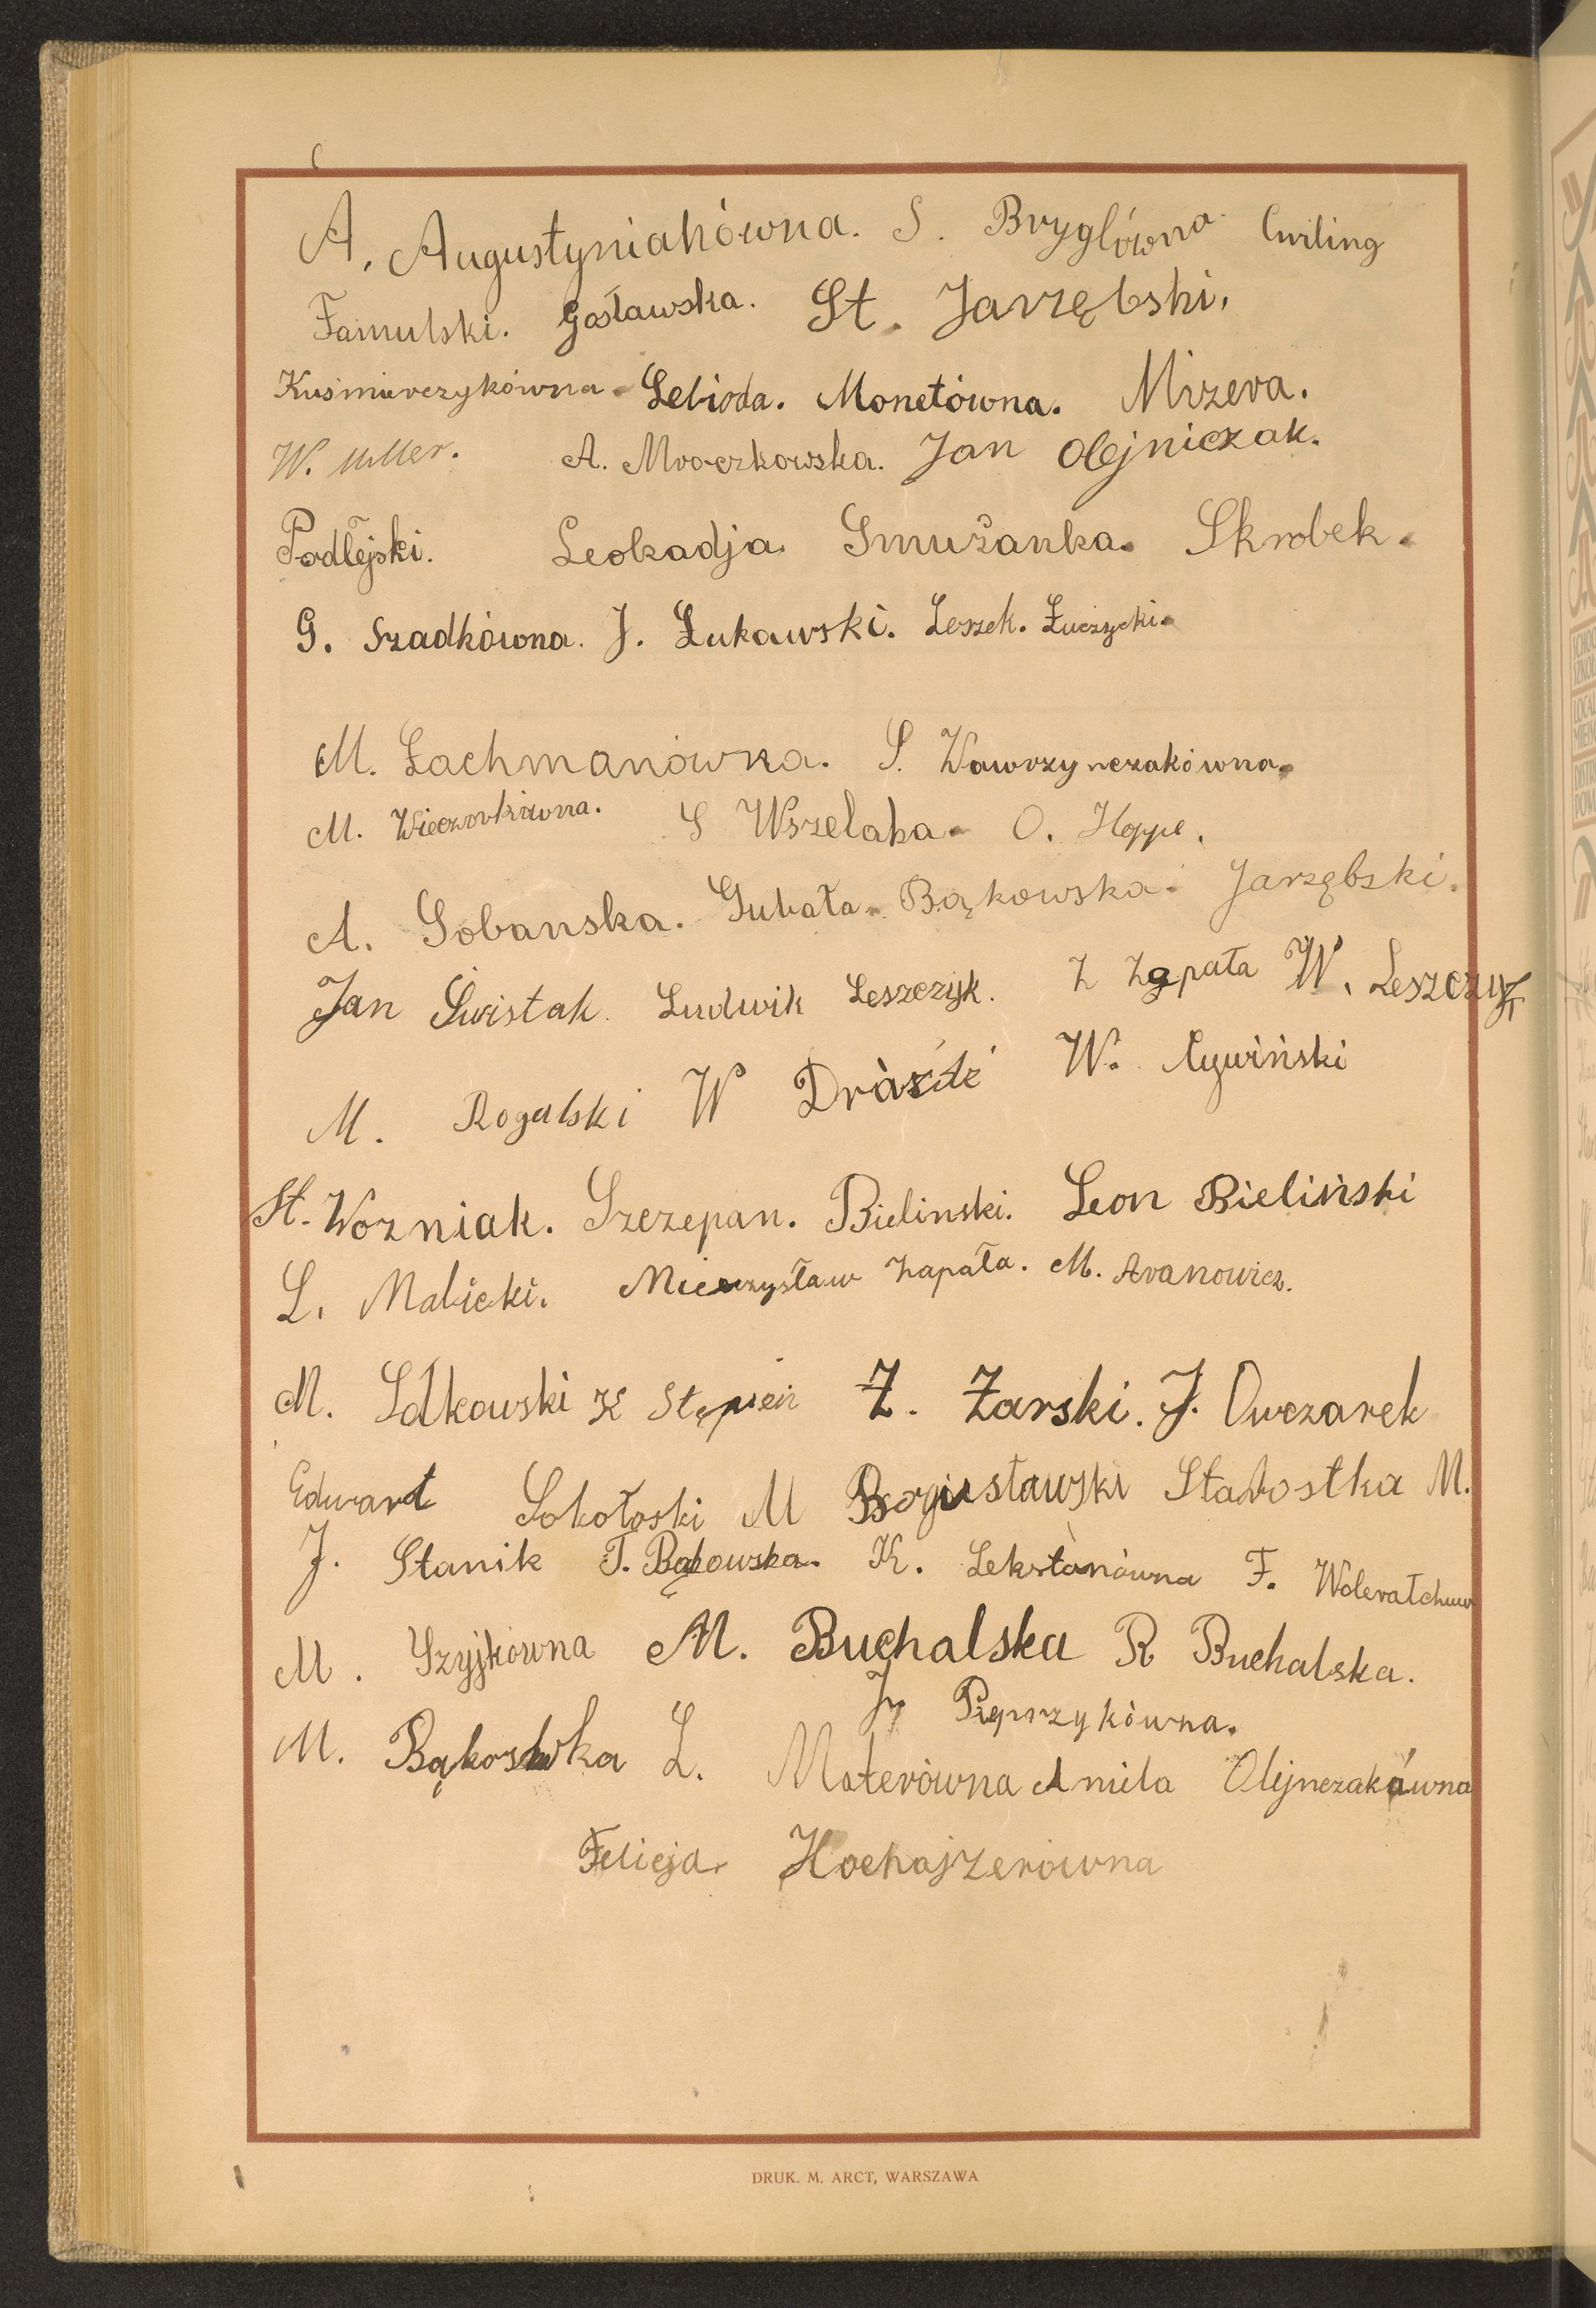 A. Augustyniakówna. S. Bryglówna. Cwiling
Famulski. Gosławska. St. Jarzębski.
Kuśmierczykówna. Lebioda. Monetówna. Mizera.
W. Miller. A. Mroczkowska. Jan Olejniczak.
Podlejski. Leokadja Smużanka. Skrobek.
G. Szadkówna. J. Łukawski. Leszek. Łuczycki.
M. Łachmanówna. S. Wawrzynczakówna.
M. Wieczorkówna. S Wszelaka. O. Hoppe.
A. Sobanska. Gubała. Bąkowska. Jarzębski.
Jan Świstak. Ludwik Leszczyk. Z Zapała W. Leszczyk
M. Rogalski W W. Cywiński
St. Wozniak. Szczepan. Bielinski. Leon Bieliński
L. Malicki. Mieczysław Zapała. M. Aranowicz.
M. Sałkowski K Stępień Z. Żarski. J. Owczarek
Edward Sokołoski M Bogusławski Starostka M.
J. Stanik T. Bąkowska. K. Lekstanówna F.
M. Szyjkówna M. Buchalska R Buchalska.
J Pieprzykówna.
M. Bąkoswka L. Materówna Amila Olejnczakówna
Felicja Hochajzerówna
DRUK. M. ARCT, WARSZAWA